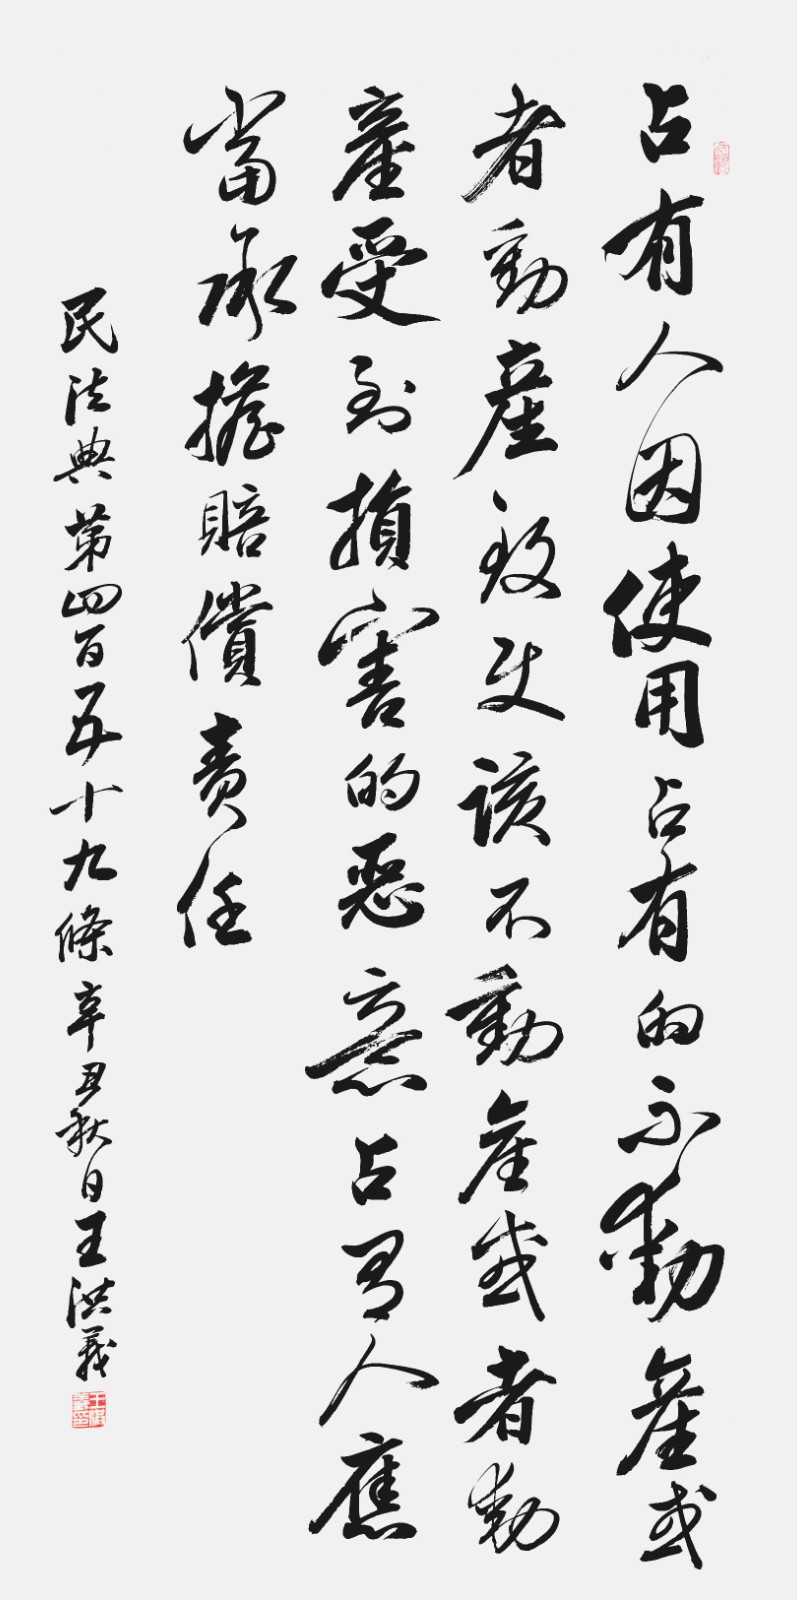 占有人因使用占有的不動產或
者動產致使該不動產或者動
產受到損害的惡意占有人應
當承擔賠償責任
民法典第四百五十九條辛丑秋日王洪義